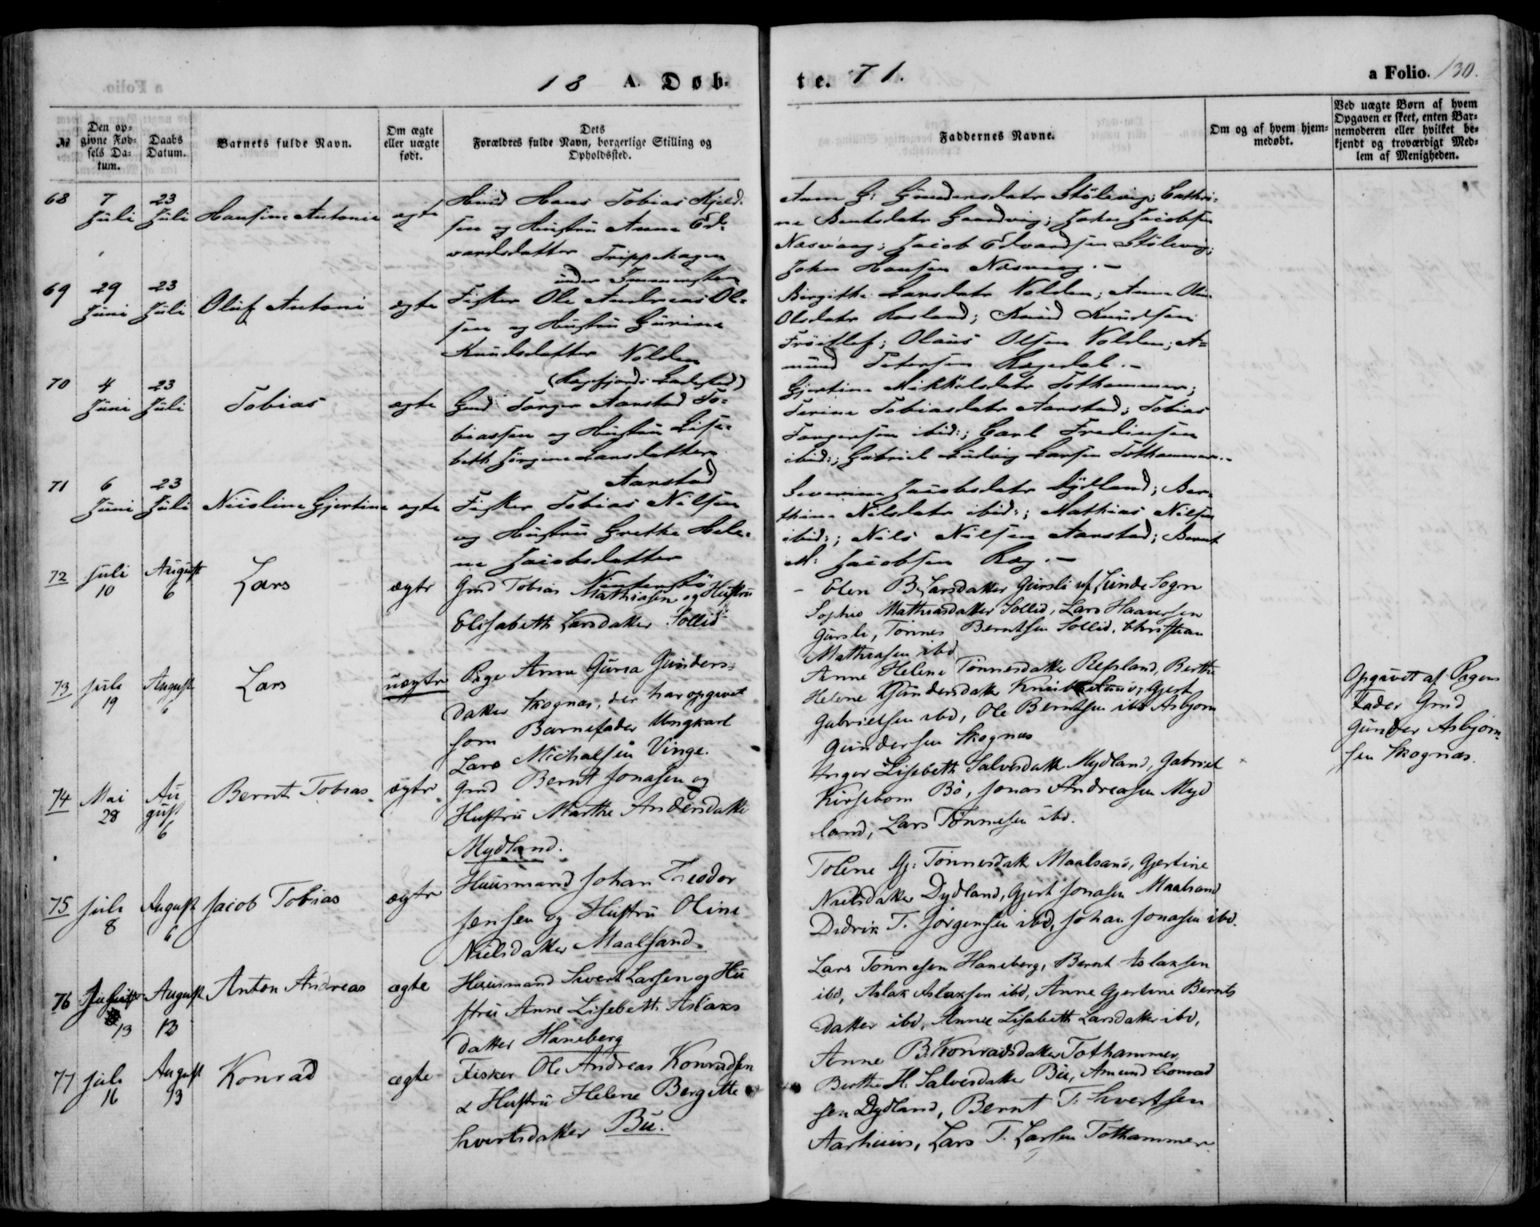 18 A. Døbte. 71.
a Folio. 130.
№
Den opgivne Fødsels Datum.
Daabs Datum.
Barnets fulde Navn.
Om ægte eller uægte født.
Dets Forældres fulde Navn, borgerlige Stilling og Opholdssted.
Faddernes Navne.
Om og af hvem hjemmedøbt.
Ved uægte Børn af hvem Opgaven er skeet, enten Barnemoderen eller hvilket bekjendt og troværdigt Medlem af Menigheden.
68
7 Juli
23 Juli
Hansine Antonie
ægte
Hans Tobias Kjeld-
sen og Hustru Anna Ed-
vardsdatter Trippehagen
Stølevig; Cathri-
ne Berntsdatr Jacobsen
Næsvaag; Jacob Edvardsen Stølevig;
John Hansen Næsvaag. –
69
29 Juni
23 Juli
Oluf Antoni
ægte
Fisker Ole Andreas Ol-
sen og Hustru Gurine
Knudsdatter Nolden
(Rægefjords Ladested)
Bergithe Larsdatr Nolden; Anna
Olsdatr; Knud Knudsen
Olaus Olsen Nolden; A-
mund Petersen Rægedal. –
70
4 Juni
23 Juli
Tobias
ægte
Gmd Torger Aanstad To-
biassen og Hustru Lisa-
beth Jørgine Larsdatter
Aanstad
Gjertine Mikkelsdatr Tothammer;
Terine Tobiasdatr Aanstad; Tobias
Torgersen ibid:; Carl Fredriksen
ibid:; Gabriel Ludvig Larsen Tothammer. –
71
6 Juni
23 Juli
Nicoline Gjertine
ægte
Fisker Tobias Nilsen
og Hustru Grethe Hele-
ne Jacobsdatter
Severine Jacobsdatr Dydland; Ber-
thine Nilsdatr ibid:; Mathias Nilsen
ibid:; Nils Nilsen Aanstad; Bernt
M: Jacobsen Ræg. –
72
Juli 10
August 6
Lars
ægte
Gmd Tobias Mathiasen og Hustru
Elisabeth Larsdatter Sollid
– Elen B. Larsdatter Gursli af Lunde Sogn
Sophie Mathiasdatter Sollid, Lars Haaversen
Gursli, Tønnes Berntsen Sollid, Christian
Mathiasen ibd
73
Juli 19
August 6
Lars
uægte
Pige Anna Gurea Gunders-
datter Skognæs, der har opgivet
som Barnefader Ungkarl
Lars Michalsen Vinge.
Anne Helene Tønnesdatter Refsland, Berthe
Helene Gundersdatter, Gjert
Gabrielsen ibd, Ole Berntsen ibd Asbjørn
Gundersen Skognæs
Opgivet af Pigens
Fader Gmd
Gunder Asbjørn-
sen Skognæs.
74
Mai 28
Au gust 6
Bernt Tobias.
ægte
Gmd Bernt Jonasen og
Hustru Marthe Andersdatte
Mydland.
Inger Lisebeth Salvesdatte Mydland, Gabriel
Kirsebom Bø, Jonas Andreasen Myd
land, Lars Tønnesen ibd.
75
Juli 8
August 6
Jacob Tobias
ægte
Huusmand Johan Theodor
Jensen og Hustru Oline
Nielsdatter Maalsand.
Tolene Gj: Tønnesdatte Maalsand, Gjertine
Nielsdatter Dydland, Gjert Jonasen Maalsand
Didrik T. Jørgensen ibd, Johan Jonasen ibd.
76
13
August 13
Anton Andreas
ægte
Huusmand Sivert Larsen og Hu
stru Anne Lisebeth Aslaks
datter Haneberg
Lars Tønnesen Haneberg, Bernt Aslaksen
ibd, Aslak Aslaksen ibd, Anne Gjertine Bernts
datter ibd, Anne Lisabeth Larsdatter ibd,
77
Juli 16
August 13
Konrad
ægte
Fisker Ole Andreas Konradsen
& Hustru Helene Bergitte
Sivertsdatter Bu.
Anne B. Konradsdatter Tothammer,
Berthe H. Salvesdatter Bu, Amund Conrad
sen Dydland, Bernt T. Sivertsen
Aarhuus, Lars T. Larsen Tothammer.